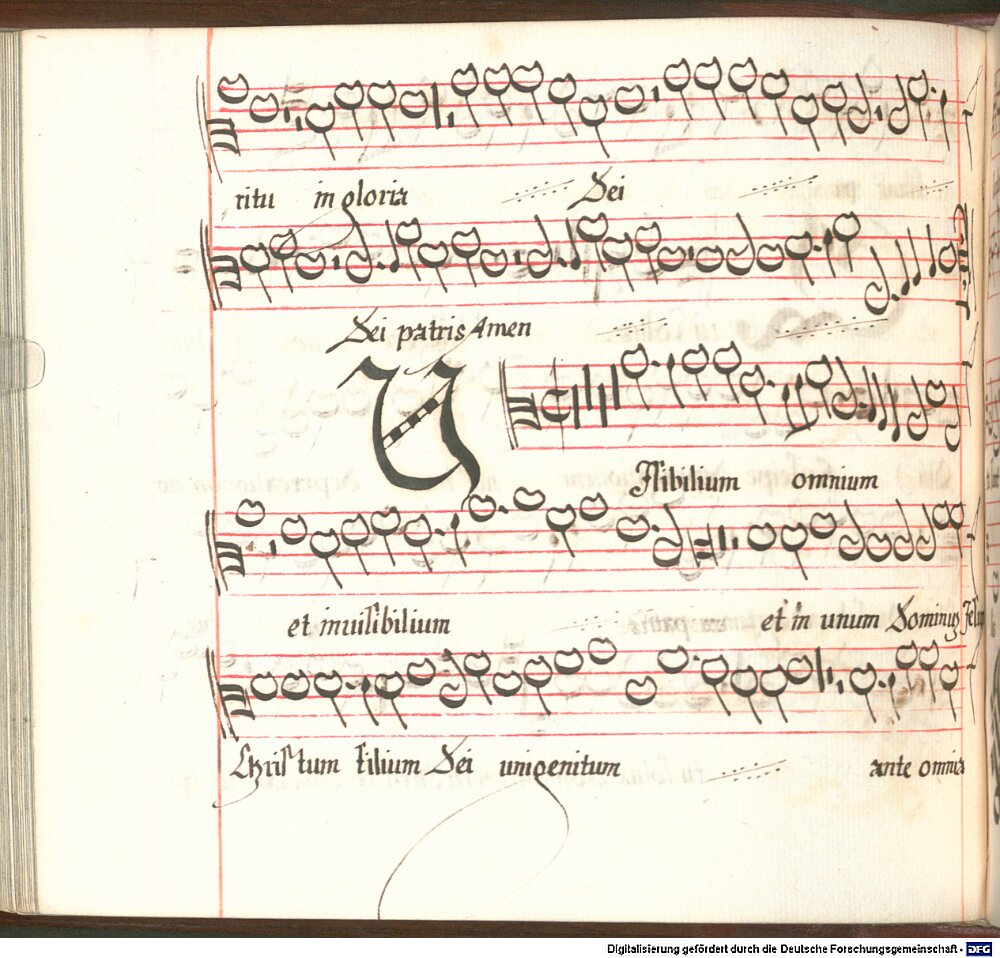 ritu in gloria Dei
Dei patris Amen
Visibilium omnium
et inuisibilium et in unum Dominum Jesum
Christum filium Dei unigenitum ante omnia
Digitalisierung gefördert durch die Deutsche Forschungsgemeinschaft - DFG